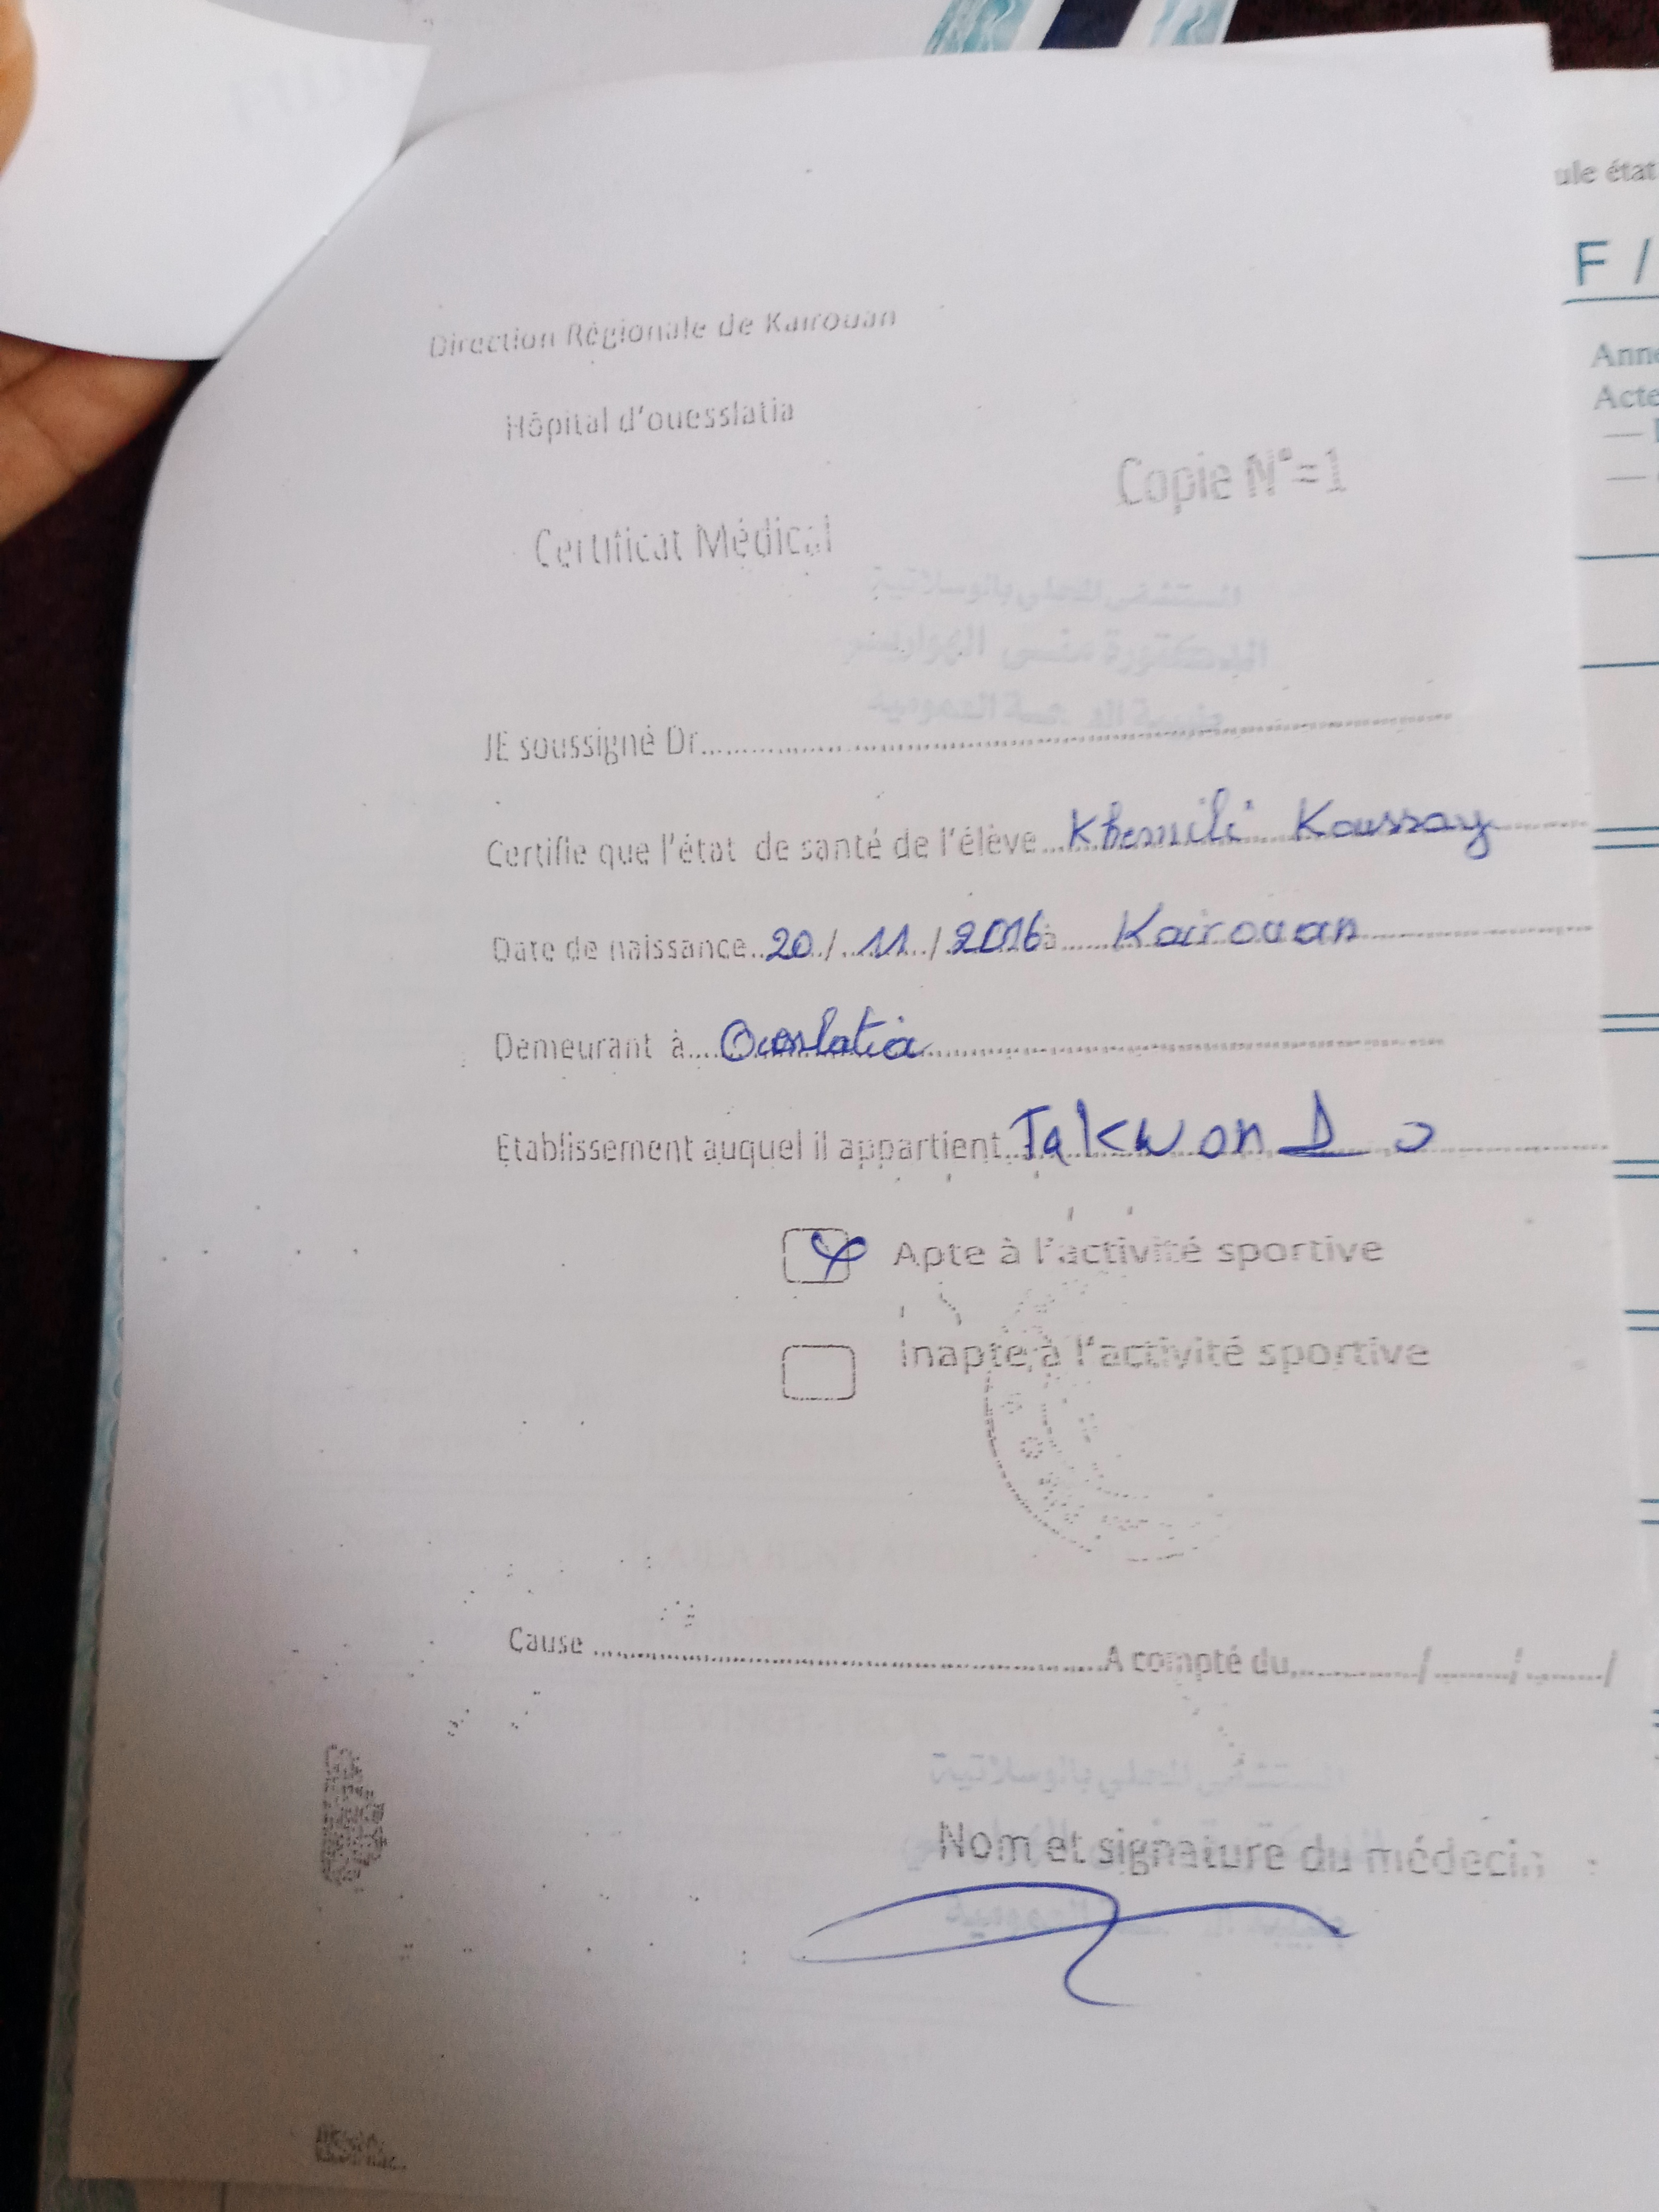 Direction Régionale de Kairouan
Hôpital d'ouesslatia
Copie N°=1
Certificat Médical
المستشفى المحلي بالوسلاتية
الدكتورة
العمومية
JE soussigné Dr
Certifie que l'état de santé de l'élève Khemili Koussay
Date de naissance 20 / 11 / 2016 à Kairouan
Demeurant à Oueslatia
Etablissement auquel il appartient TakwonDo
Apte à l'activité sportive
Inapte à l'activité sportive
Cause A compté du / / /
المستشفى المحلي بالوسلاتية
Nom et signature du médecin
ule état
F /
Acte